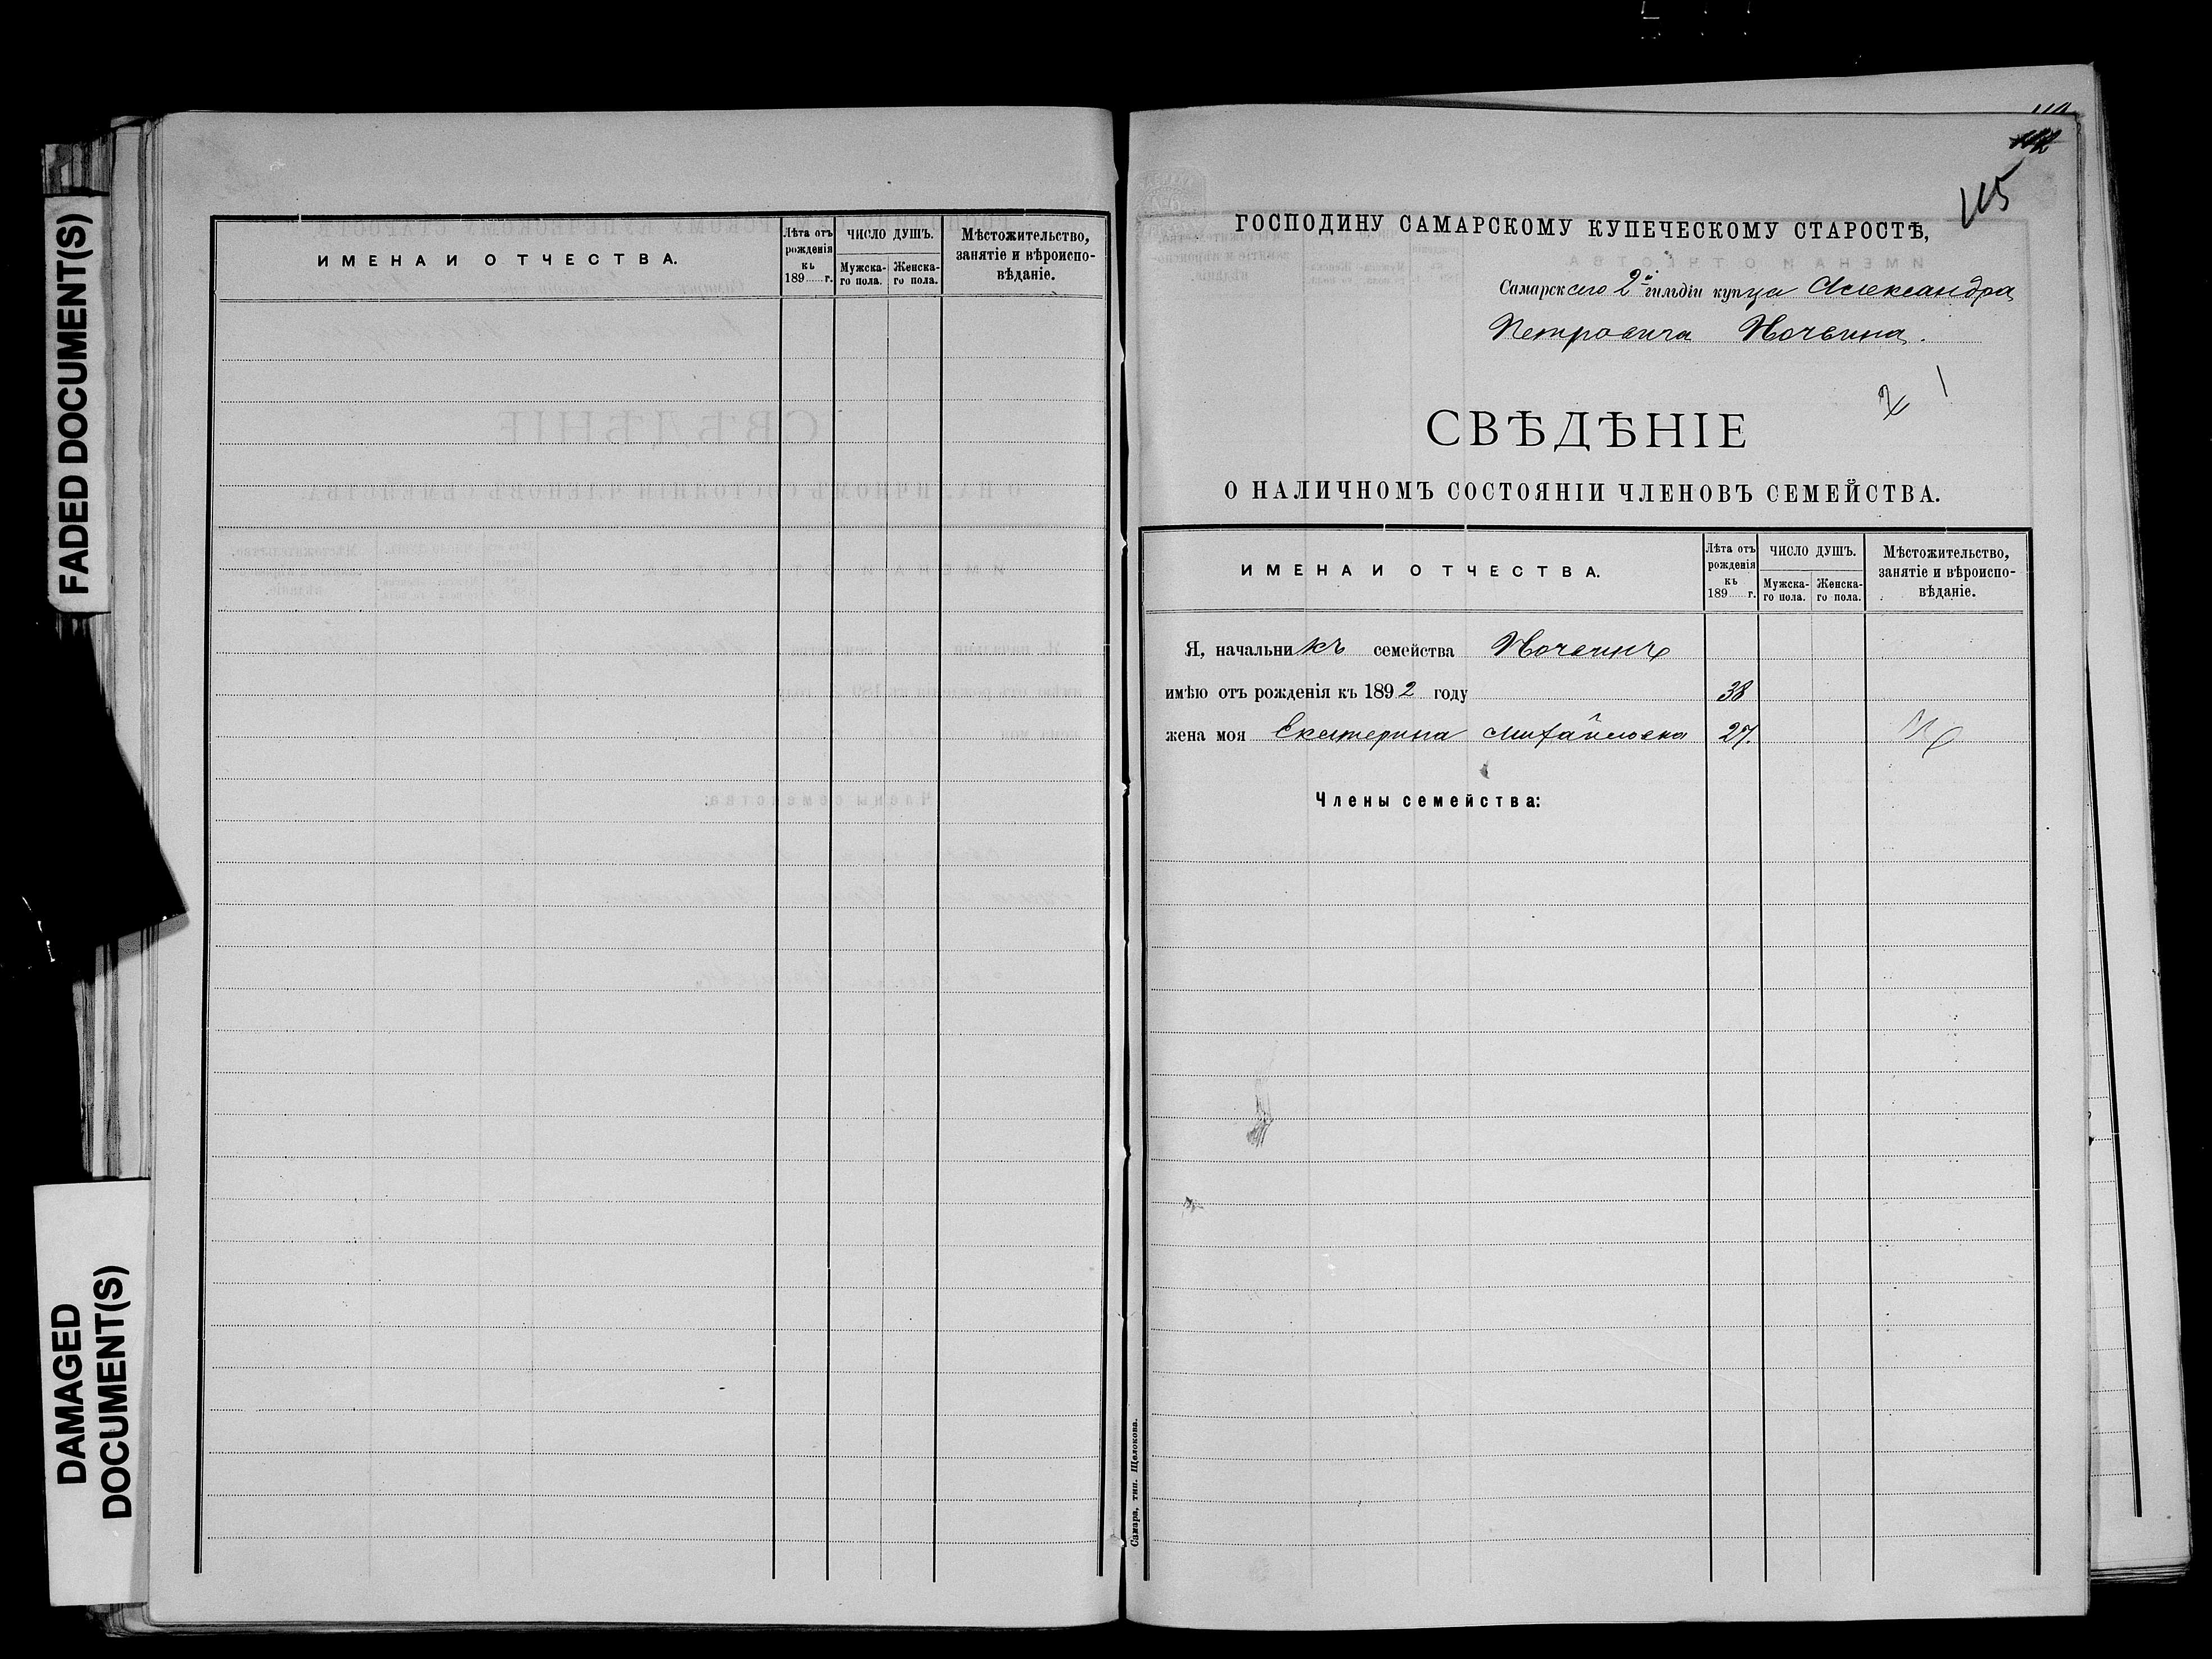 FADED DOCUMENT(S)
DAMAGED
DOCUMENT(S)
ИМЕНА И ОТЧЕСТВА.
Лѣта отъ рожденія къ 189 г.
ЧИСЛО ДУШЪ.
Мужска-го пола.
Женска-го пола.
Мѣстожительство, занятіе и вѣроиспо-вѣданіе.
115
ГОСПОДИНУ САМАРСКОМУ КУПЕЧЕСКОМУ СТАРОСТѢ,
Самарскаго 2й гильдіи купца Александра
Петровича
СВѢДѢНІЕ
О НАЛИЧНОМЪ СОСТОЯНІИ ЧЛЕНОВЪ СЕМЕЙСТВА.
ИМЕНА И ОТЧЕСТВА.
Лѣта отъ рожденія къ 189 г.
ЧИСЛО ДУШЪ.
Мужска-го пола.
Женска-го пола.
Мѣстожительство, занятіе и вѣроиспо-вѣданіе.
Я, начальникъ семейства
имѣю отъ рожденія къ 1892 году 38
жена моя Екатерина Михайловна 27.
Члены семейства:
Самара, тип. Щелокова.